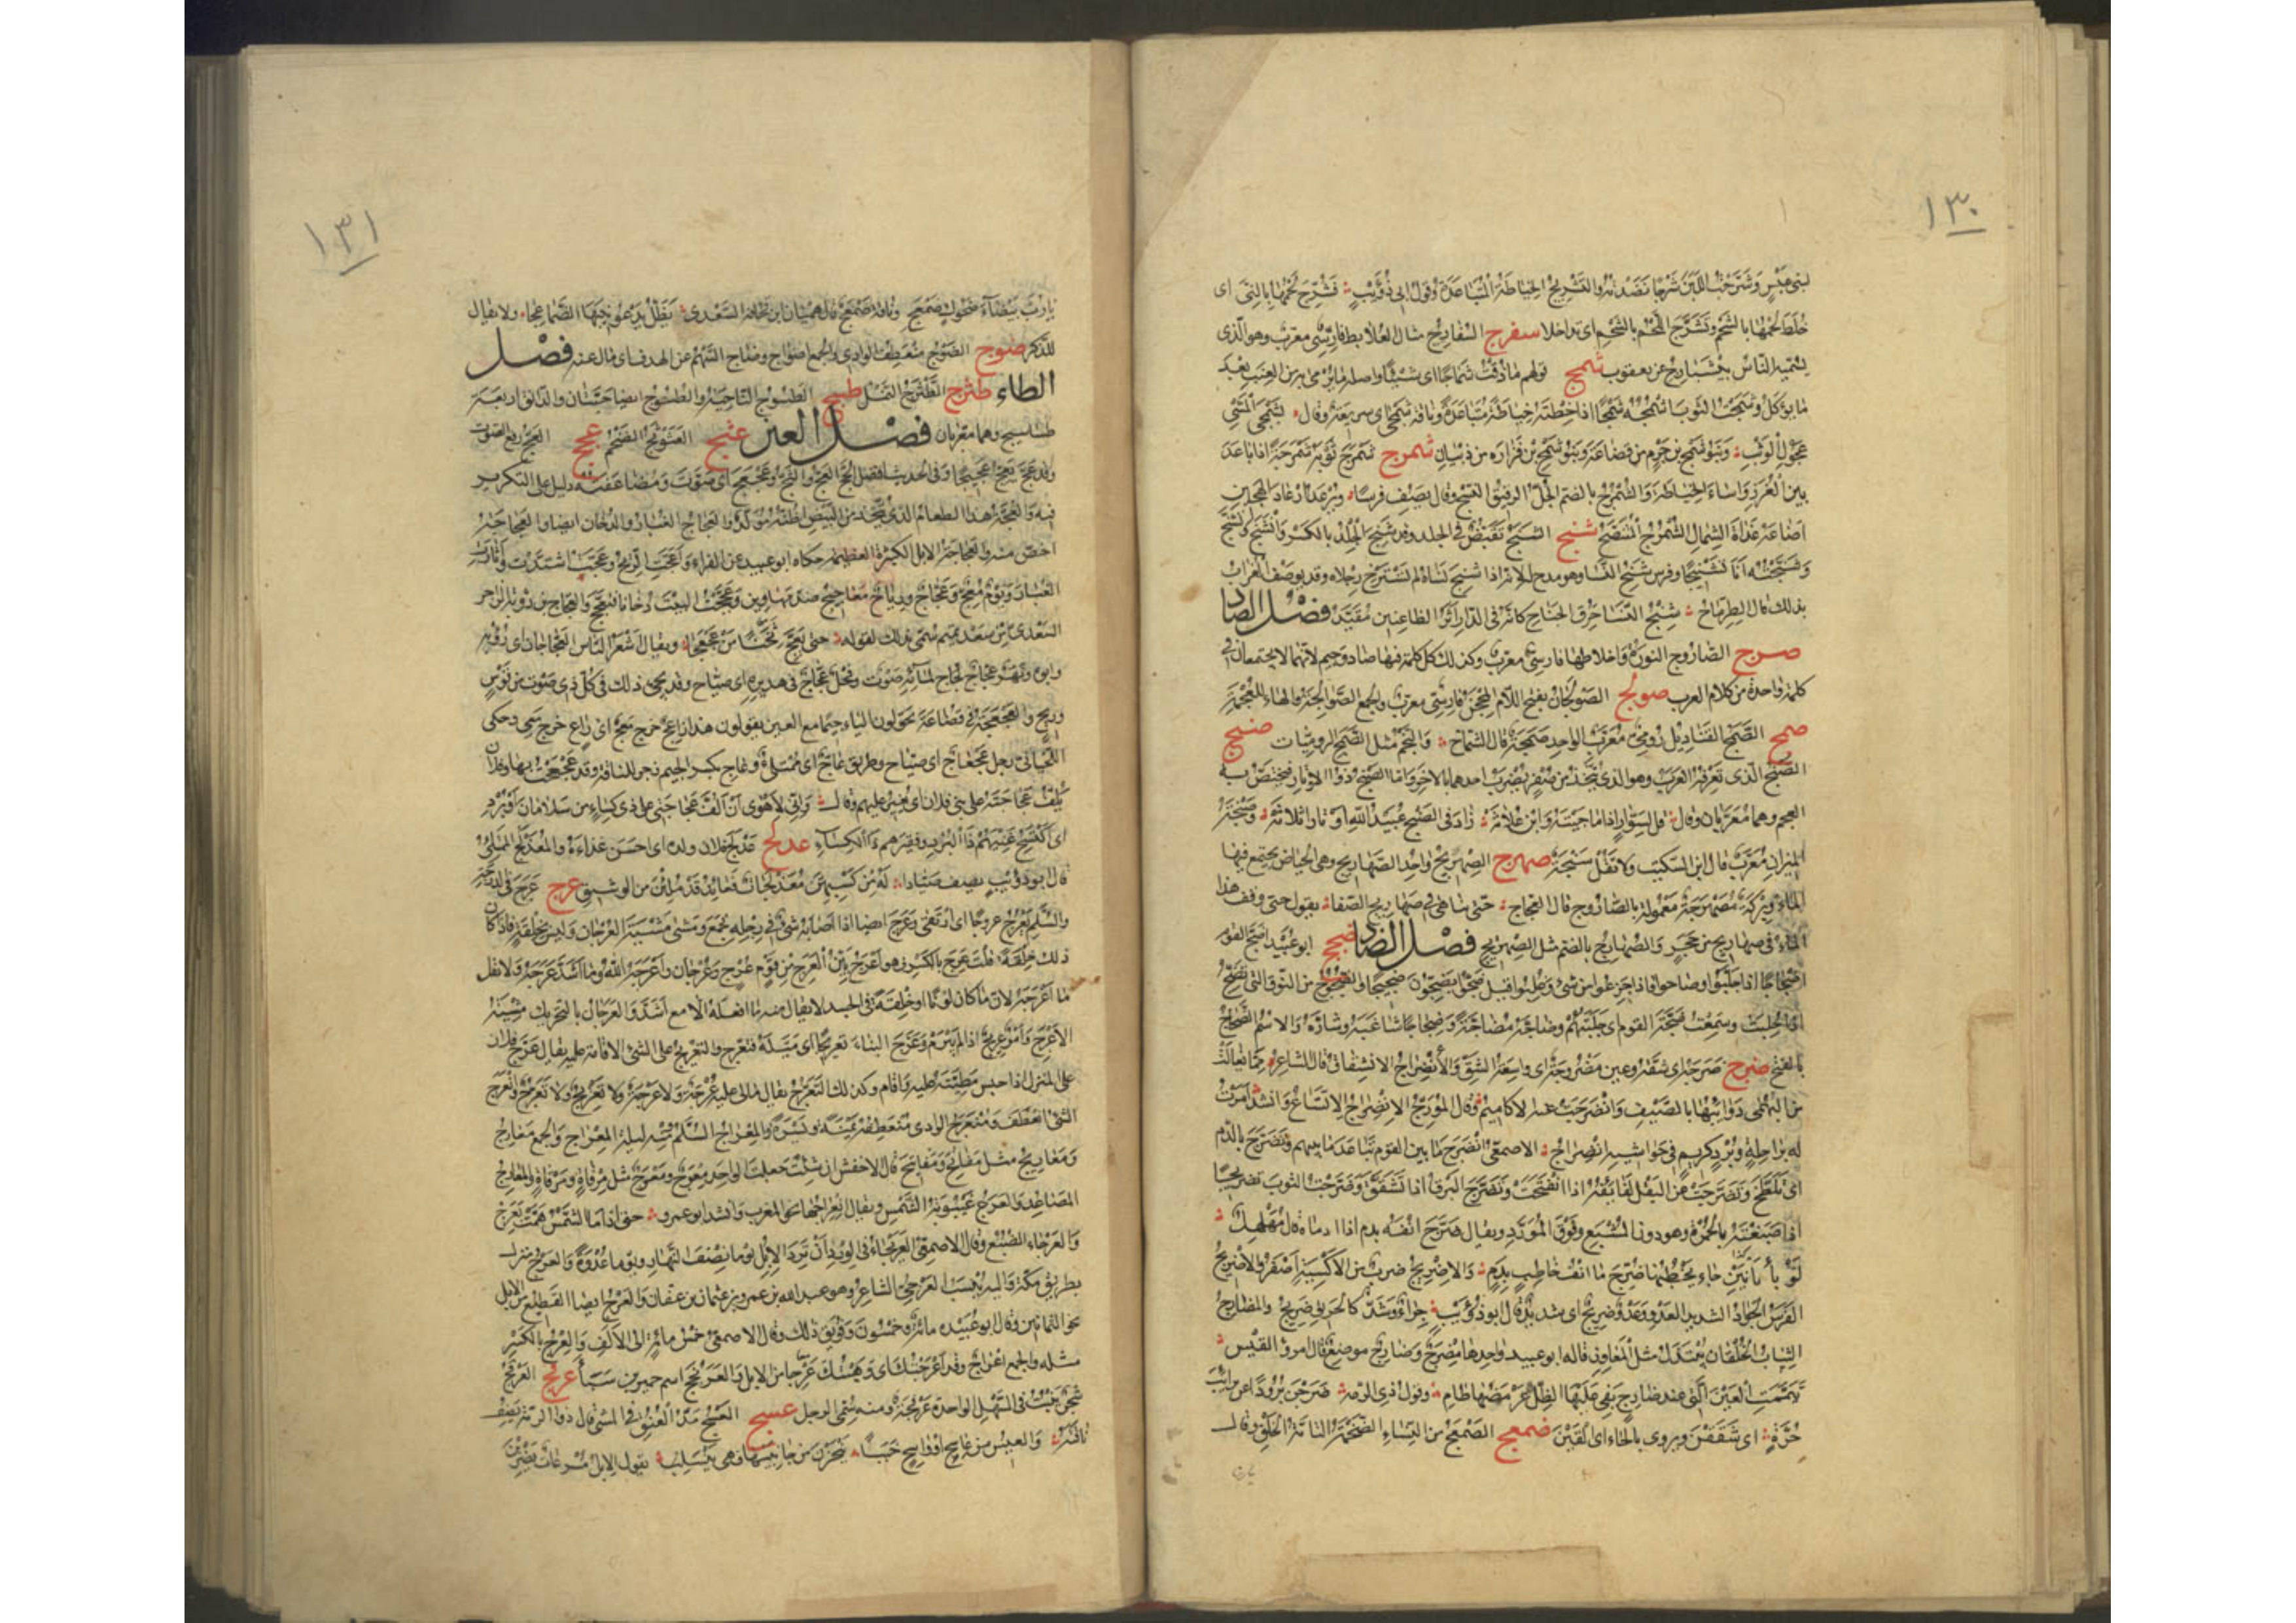 ١٣٠
لبنى عَبْسٍ وَشَرَّجْتُ اللَّبِنَ شَرْجًا نَضَدْتُهُ والتَّشْرِيجُ الخِيَاطَةُ المُتَبَاعَدَةُ وقول ابى ذُؤَيْبٍ فَشُرِّجَ لَحْمُهَا بِالنِّىّ اى
خُلِطَ لحمُهَا بالشحم وتَشَرَّجَ اللَّحْمُ بالشَحْمِ اى تداخلا سفرج
يسميه النّاسُ عن يعقوب شمج قولهم ما ذُقْتُ شَمَاجًا اى شَيْئًا واصله ما يُرْمى به من العنب بَعْدَ
مَا يُوكل وشَمَجْتُ الثوبَ اَشْمُجُهُ شَمْجًا اذا خِطْتَه خِيَاطَةً مُتَبَاعَدَةً وناقة شَمَجَى اى سريعة وقال بِشَمَجَى المَشْىِ
عَجُولِ الوَثْبِ وَبَنُو شَمَجِ بن جَرْمٍ من قضاعة وَبَنُو شَمْجِ بْن فَزَارَة من ذُبْيَان شمرج شَمْرَجَ ثَوْبَهُ شَمْرَجَةً اذا باعَدَ
بين الغُرَزِ وَاَسَاءَ الخِيَاطَةَ وَالشُّمْرُجُ بالضم الجُلُّ الرقيق النسج وقال يَصِفُ فرسًا ويُرْعَدُ اِرْعَادَ الهَجِينِ
اَضَاعَهُ غَدَاةَ الشِمَالِ الشُّمْرُجُ المُتَنَصَّحُ شنج الشَنَجُ تَقَبُّضٌ فى الجلد وقد شَنِجَ الجِلْدُ بالكَسْر وَانْشَنَجَ وَتَشَنَّجَ
وَشَنَّجْتُه اَنَا تَشْنِيجًا وفرس شَنِجُ النَّسَا وهو مدح له لانه اذا شَنِجَ نَسَاهُ لم تَسْتَرْخِ رِجلاه وقد يوصف الغُراب
بذلك قال الطِرِمَّاحُ شَنِجُ النَّسَا حَرِقُ الجناحِ كانّه فى الدَّار اِثْرَ الظاعنين مُقَيَّدُ فصل الصاد
صرج الصَّارُوج النورةُ وَاَخلاطها فارسىٌّ معرّب وكذلك كل كلمة فيها صاد وجيم لانّهما لا يجتمعان فى
كلمة واحدة من كلام العرب صولج الصَّوْلَجَانُ بفتح اللَّام المِحْجَنُ فَارِسِىٌّ معرّب والجمع الصَّوَالِجَة والهاء للعُجْمَة
صمج الصَّمَجُ القَنَادِيل رُومِىٌّ مُعَرَّبٌ الواحدة صَمَجَة قال الشمّاخ وَالنَّجْمُ مِثْلُ الصَّمَجِ الرومِيَّات صنج
الصَّنْجُ الّذى تَعْرِفُه العَرَبُ وهو الذى يُتَّخَذُ من صُفْرٍ يُضْرَبُ احدهما بالاخر وَامّا الصَنْجُ ذُو الاَوْتَارِ فيَخْتَصّ به
العجم وهما مُعَرَّبَان وقال قل لِسَوَّارٍ اذا ما جِئْتَه وَابْنِ عُلَاثَهْ زَادَ فى الصَّنْجِ عُبَيْدُ اللهِ اَوْتَارًا ثَلَاثَهْ وَصَنْجَةُ
الميزان مُعَرَّبٌ قال ابن السكيت ولا تَقُلْ سَنْجَةٌ صهرج الصِهْرِيجُ واحد الصَّهَارِيج وهى كالحِيَاضِ يجتمع فيها
الماءُ وبِرْكَةٌ مُصَهْرَجَةٌ مَعْمُولَة بالصَّارُوج قال العجاج حتّى تناهى فى صَهَارِيجِ الصَّفَا يقول حتى وقف هذا
الماءُ فى صهاريج من حَجَرٍ والصُّهَارِجُ بالضم مثل الصِهْرِيج فصل الضاد ضجج ابو عُبَيْد اَضَجَّ القوم
اِضْجَاجًا اذا جَلَّبُوا وصاحوا فاذا جَزِعُوا من شئ وغُلِبُوا قيل ضَجُّوا يَضِجُّونَ ضَجِيجًا والضَّجُوجُ من النُّوق التى تَضِجُّ
اذا حُلِبَتْ وسَمِعْتُ ضَجَّةَ القوم اى جَلَبَتَهُمْ وضاجَّه مُضَاجَّةً وَضِجَاجًا شاغَبَه وشارَّه وَالاسْمُ الضَّجَاجُ
بالفتح ضرج ضَرَجَهُ اى شَقَّه وعين مَضْرُوجَةٌ اى واسِعَةُ الشَقِّ وَالاِنْضِرَاجُ الانشِقَاقُ قال الشاعر مِمَّا تَعَالَتْ
من البُهْمَى ذَوَائِبُهَا بالصَّيْفِ وَانْضَرَجَتْ عنه الاَكَامِيمُ وقال المُؤَرِّجُ الاِنْضِرَاجُ الاتساعُ وَانشد اَمَرْتُ
له بِرَاحِلَةٍ وَبُرْدٍ كريمٍ فى حَوَاشيهِ انْضِرَاجُ الاصمعىُّ انْضَرَجَ مَا بين القوم تَبَاعَدَ مَا بينهم وتَضَرَّجَ بالدَّم
اى تَلَطَّخَ وَتَضَرَّجَتْ عن البَقْل لَفَائِفُه اذا انْفَتَحَتْ وَتَضَرَّجَ البرقُ اذا تَشَقَّقَ وَضَرَّجْتُ الثوبَ تَضْرِيجًا
اذا صَبَغْتَهُ بالحُمْرَة وهو دون المُشْبَعِ وَفَوْقَ المُوَرَّد ويقال ضَرَّجَ اَنْفَه بدمٍ اذا ادماه قال مُهَلْهِلٌ
لَوْ بِاَبَانَيْنِ جاء يَخْطُبُها ضُرِّجَ ما اَنْفُ خَاطِبٍ بِدَمِ وَالاِضْرِيجُ ضربٌ من الاَكْسِيَة اَصْفَرُ والاِضْرِيجُ
الفَرَسُ الجَوَادُ الشديد العَدْوِ وعَدْوٌ ضَرِيجٌ اى شديد قال ابو ذُؤَيْبٍ جِرَاءٌ وشَدٌّ كالحَريق ضَرِيجُ والمَضَارِجُ
الثِيَابُ الخُلْقَان تُبْتَذَلُ مثلُ المَعَاوِز قاله ابو عبيد واحدها مِضْرَجٌ وَضَارِجٌ موضعٌ قال امرؤ القَيْس
تَيَمَّمَتِ العَيْنَ الَّتى عند ضَارِجٍ يَفِئُ عَلَيْهَا الظِلُّ عَرْمَضُها طَامِ وقول ذى الرمة ضَرَجْنَ بُرُودًا عن تَرَائِبِ
حُرَّةٍ اى شَقَقْنَ ويروى بالحاء اى اَلْقَيْنَ ضمعج الصَمْعَجُ من النِسَاءِ الضَخْمَةُ التامَّةُ الخَلْقِ وقال
١٣١
يا رُبَّ بَيْضَاءَ ضَحُوكٍ ضَمْعَج وناقة ضَمْعَجٌ قال هِمْيَان ابن قُحَافَة السَّعْدى يَظَلُّ يَدْعُو نِيبَهَا الضَمَاعِجَا ولا يقال
للذكر صوج الصَّوْجُ مُنْعَطِفُ الوادى والجمع اضواج وضاج السَّهْمُ عن الهدف اى مال عنه فصل
الطاء طثرج الطَّثْرَجُ النَّمْلُ طسج الطَسُّوج النَّاحِيَةُ والطَسُّوج ايضا حَبَّتَان والدَّانَق اربعة
طَسَاسِيج وهما معرّبان فصل العين عثج العَثَوْثَجُ الضَخْمُ عجج العَجُّ رفع الصَّوْت
وقد عَجَّ يَعِجُّ عَجِيجًا وفى الحديث افضل الحجّ العَجُّ والثَّجُّ وعَجْعَجَ اى صَوَّتَ وَمُضَاعَفَتُه دليل على التكرير
فيه والعُجَّةُ هذا الطعام الذى يُتَّخَذُ من البَيْضِ اَظُنُّه مُوَلَّدًا والعَجَاجُ الغُبَار والدُّخَان ايضا والعَجَاجَةُ
اخَصّ منه والعَجَاجَةُ الابل الكثيرة العظيمة حكاه ابو عبيد عن الفراء وَاَعَجَّتِ الرِيحُ وعَجَّتْ اشتدّت وَاَثَارَت
الغُبَارَ وَيَوْمٌ مُعِجٌّ وعَجَّاجٌ ورِيَاحٌ مَعَاجِيجُ ضد مَهَاوِين وعَجَّجْتُ البيتَ دُخَانًا فتَعَجَّجَ والعجاج بن رؤبة الراجز
السَعْدى من سَعْدِ تميم سُمِّىَ بذلك لقوله حتى يَعِجَّ ثَخَنًا مَنْ عَجْعَجَا ويقال اَشْعَرُ النَّاس العَجَّاجَان اى رُؤْبَة
وابوه ونَهْرٌ عَجَّاجٌ لمائِه صَوْتٌ وفَحْلٌ عَجَّاجٌ فى هَدِيره اى صَيَّاح وقد يجئ ذلك فى كلّ ذى صَوْت من قَوْسٍ
وريحٍ والعَجْعَجَةُ فى قُضَاعَة يحوّلون الياء جيمًا مع العين يقولون هذا رَاعِجَّ خرج مَعِجّ اى رَاعِىَّ خرج مَعِى وحكى
اللحيانىُّ رجل عَجْعَاجٌ اى صَيَّاح وطريق عَاجٌّ اى مُمْتَلِئٌ وعاجِ بكسر الجيم زجر للناقة وقد عَجْعَجْتُ بها وفلان
يَلُفُّ عَجَاجَتَه على بنى فلان اى يُغِير عليهم وقال وَاِنِّى لَاَهْوَى اَنْ اَلُفَّ عَجَاجَتى على ذى كِسَاءٍ من سَلَامَانَ اَوْ بُرْدِ
اى اَكْتَسِحَ غَنِيَّهُمْ ذَا البُرْدِ وفقيرهم ذَا الكِسَاءِ عذلج عَذْلَجَ فلان ولده اى احسَنَ غِذَاءَهُ والمُعَذْلَجُ المُمْتَلِئُ
قال ابو ذؤيب يصف صَيَّادًا لَهُ مِنْ كَسْبِهِنَّ مُعَذْلَجَاتٌ قَعَائِدُ قَدْ مُلِئْنَ من الوَشِيقِ عرج عَرَجَ فى الدَرَجَة
والسُّلَّمِ يَعْرُجُ عُرُوجًا اى ارْتَقَى وعَرَجَ ايضا اذا اَصَابَهُ شئ فى رِجلِهِ فَخَمَعَ ومَشَى مَشْيَةَ العُرْجَان وَلَيْس بِخِلْقَة فاذا كان
ذلك خِلْقَةً قُلْتَ عَرِجَ بالكَسْر فهو اَعْرَجُ بَيِّنُ العَرَجِ مِن قَوْمٍ عُرْجٍ وعُرْجَان وَاَعْرَجَهُ اللهُ وما اَشَدَّ عَرَجَهُ ولا تقل
مَا اَعْرَجَهُ لانّ ما كان لونًا او خِلْقَةً فى الجسد لا يقال منه ما اَفْعَلَهُ الّا مع اَشَدّ والعَرَجَانُ بالتحريك مِشْيَةُ
الاَعْرَج وَاَمْرٌ عَرِيجٌ اذا لم يُبْرَمْ وعَرَّجَ البناءَ تعريجًا اى مَيَّلَهُ فتَعَرَّج والتعريجُ على الشئ الاقامة عليه يقال عَرَّجَ فلان
على المنزل اذا حبس مَطِيَّتَه عليه وَاَقام وكذلك التَعَرُّجُ يقال مالى عليه عُرْجَةٌ ولا عَرْجَةٌ ولا تَعْرِيجٌ ولا تَعَرُّجٌ وانْعَرَجَ
الشئ انعَطَفَ ومُنْعَرَجُ الوادى مُنْعَطَفُه يَمْنَةً ويَسْرَةً والمِعْرَاجُ السُّلَّم ومنه ليلة المِعْرَاج والجمع مَعَارِجُ
ومَعَارِيجُ مثل مَفَاتِحَ ومَفَاتِيحَ قال الاخفش ان شئتَ جعلتَ الواحد مِعْرَجٌ ومَعْرَجٌ مثل مِرْقَاةٍ ومَرْقَاةٍ والمَعَارِجُ
المَصَاعِدُ والعَرَجُ غَيْبُوبَةُ الشَّمْسِ ويقال انْعِرَاجُهَا نحو المغرب وَانشد ابو عمرو حتى اذا ما الشَّمْسُ هَمَّتْ بِعَرَجْ
وَالعَرْجَاءُ الضَبُعُ وقال الاصمعىُّ العُرَيْجَاءُ فى الوِرْدِ اَنْ تَرِدَ الاِبِلُ يومًا نِصْفَ النَّهار ويومًا غُدْوَةً وَالعَرْجُ منزل
بطريق مكّة وَاليه يُنْسَبُ العَرْجِىُّ الشاعر وهو عبد الله بن عمرو بن عثمان بن عفّان والعَرْجُ ايضا القَطِيعُ من الابل
نحو الثمانين وقال ابو عُبَيْدة مائة وخَمْسُونَ وفُوَيْقَ ذلك وقال الاصمعىّ خَمْسُ مائة الى الاَلْفِ والعِرْجُ بالكَسْر
مثله والجمع اَعْرَاجٌ وقد اَعْرَجْتُكَ اى وَهَبْتُكَ عَرْجًا من الابل والعَرَنْجَجُ اسم حمير بن سَبَأ عرفج العَرْفَجُ
شجرٌ يَنْبُتُ فى السَّهْلِ الواحدة عَرْفَجَةٌ ومنه سُمِّىَ الرجل عسج العَسْجُ مَدُّ العُنُقِ فى المشى قال ذو الرمة يَصِفُ
ناقَتَه وَالعِيسُ من عَاسِجٍ اَوْ وَاسِجٍ خَبَبًا يُنْحَزْنَ من جَانِبَيْها وهى تَنْسَلِبُ يقول الابل مُسْرِعَات يُضْرَبْنَ